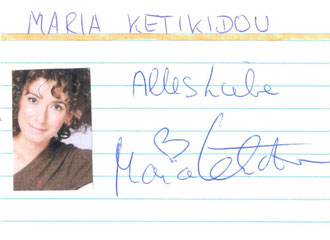 MARIA KETIKIDOU
Alles Liebe
Maria